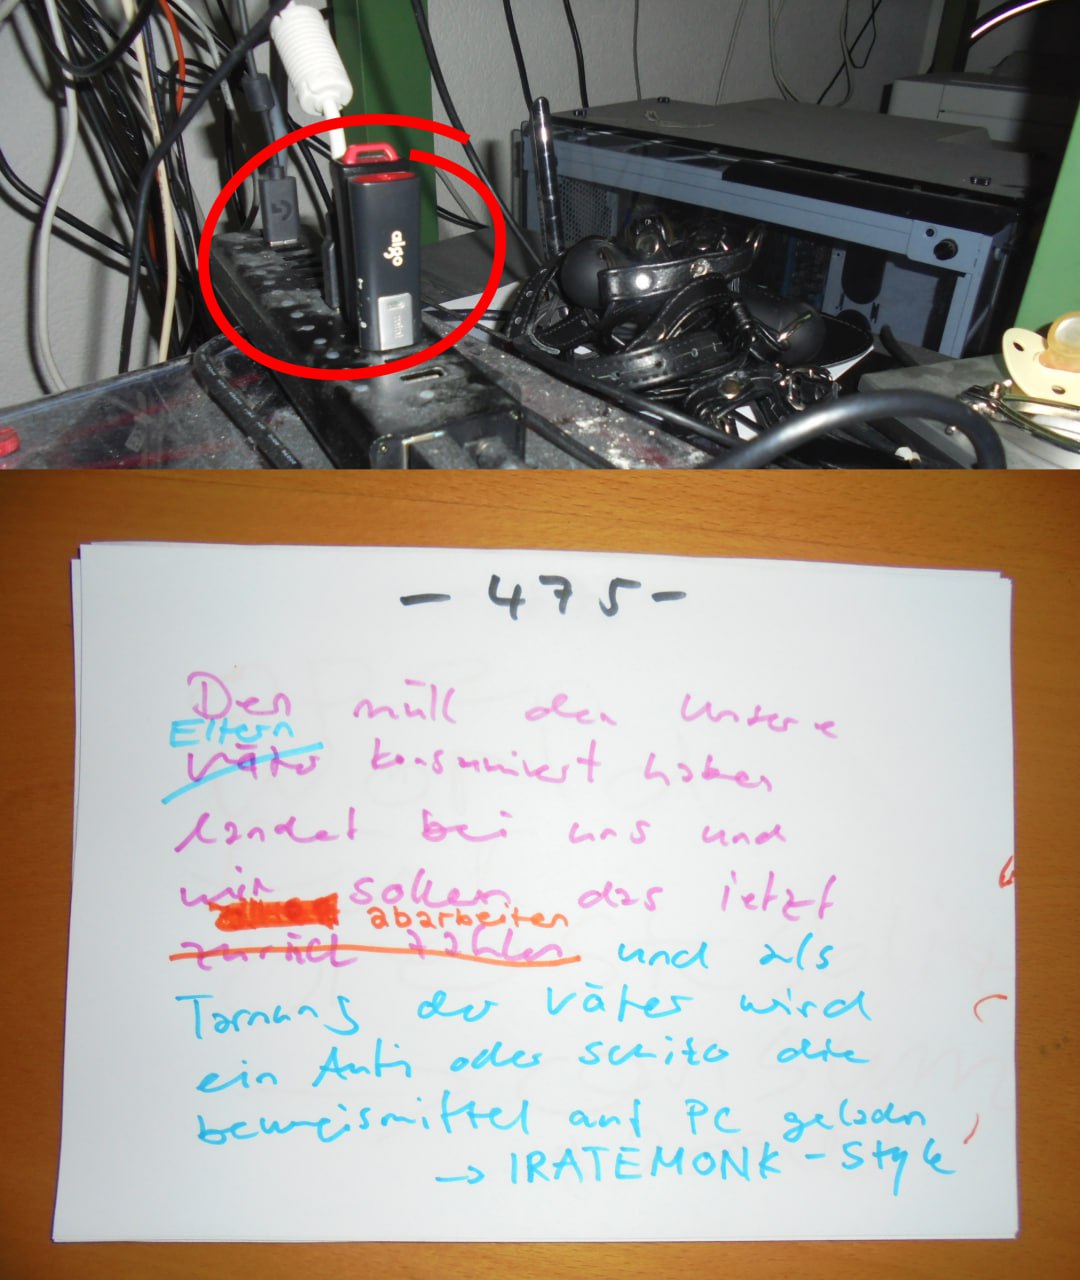 aigo
mini
- 475 -
Den müll den unsere
Eltern
Väter konsumiert haben
landet bei uns und
wir sollen das jetzt
abarbeiten
zurück zahlen und als
Tarnung der Väter wird
ein Anti oder schizo die
beweismittel auf PC geladen
→ IRATEMONK - Style